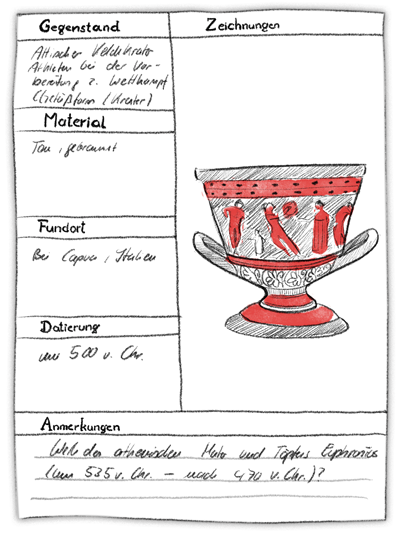 Gegenstand
Attischer Kelchkrater
Athleten bei der Vor-
bereitung z. Wettkampf
(Gefäßform (Krater)
Material
Ton, gebrannt
Fundort
Bei Capua, Italien
Datierung
um 500 v. Chr.
Zeichnungen
Anmerkungen
Werk des athenischen Maler und Töpfers Euphronios
(um 535 v. Chr. – nach 470 v. Chr.)?